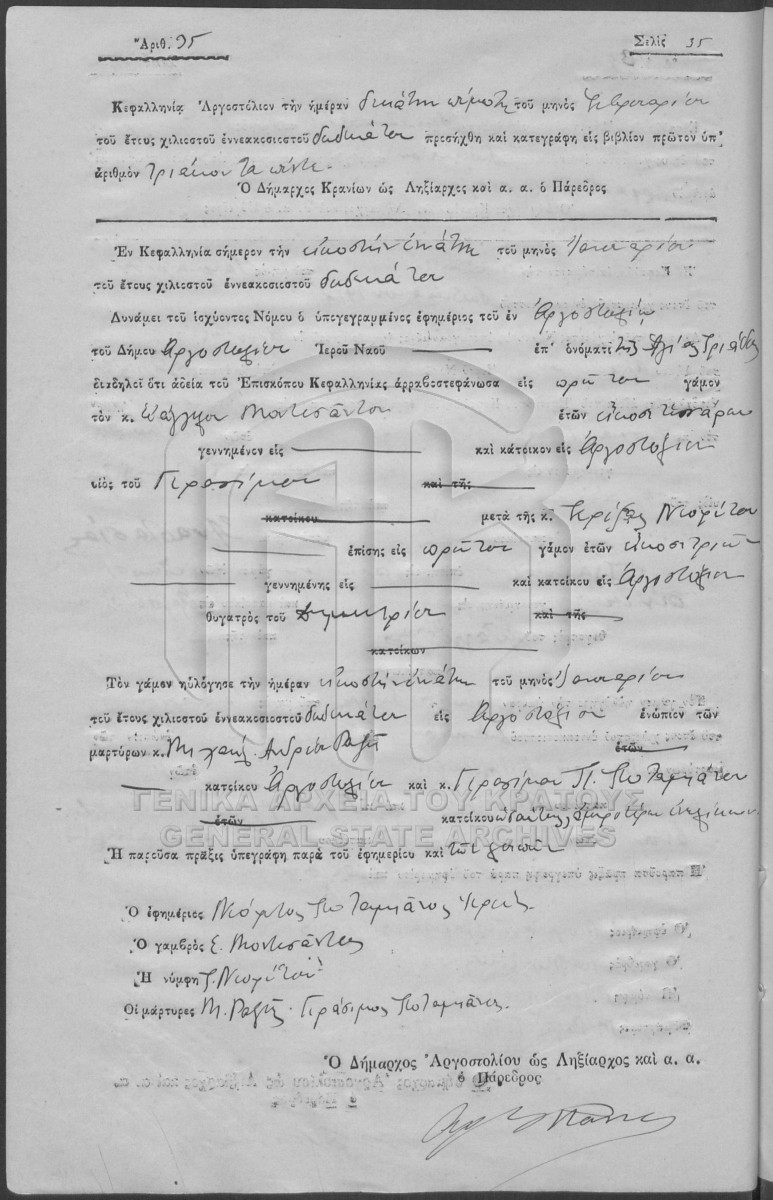 Ἀριθ. 35 Σελὶς 35
Κεφαλληνία Ἀργοστόλιον τὴν ἡμέραν δεκάτην πέμπτην τοῦ μηνὸς Φεβρουαρίου
τοῦ ἔτους χιλιοστοῦ ἐννεακοσιοστοῦ δωδεκάτου προσήχθη καὶ κατεγράφη εἰς βιβλίον πρῶτον ὑπ'
ἀριθμὸν τριάκοντα πέντε.
Ὁ Δήμαρχος Κρανίων ὡς Ληξίαρχος καὶ α. α. ὁ Πάρεδρος
Ἐν Κεφαλληνία σήμερον τὴν εἰκοστὴν ἐνάτην τοῦ μηνὸς Ἰανουαρίου
τοῦ ἔτους χιλιοστοῦ ἐννεακοσιοστοῦ δωδεκάτου
Δυνάμει τοῦ ἰσχύοντος Νόμου ὁ ὑπογεγραμμένος ἐφημέριος τοῦ ἐν Ἀργοστολίῳ
τοῦ Δήμου Ἀργοστολίου Ἱεροῦ Ναοῦ ἐπ' ὀνόματι τῆς Ἁγίας Τριάδος
διαδηλοῖ ὅτι ἀδεία τοῦ Ἐπισκόπου Κεφαλληνίας ἀρραβοστεφάνωσα εἰς πρῶτον γάμον
τὸν κ. Μοντεσάντον ἐτῶν εἰκοσιτεσσάρων
γεννημένον εἰς καὶ κάτοικον εἰς Ἀργοστόλιον
υἱὸς τοῦ Γερασίμου καὶ τῆς
κατοίκου μετὰ τῆς κ. Νεοφύτου
ἐπίσης εἰς πρῶτον γάμον ἐτῶν εἰκοσιτριῶν
γεννημένης εἰς καὶ κατοίκου εἰς Ἀργοστόλιον
θυγατρὸς τοῦ Δημητρίου καὶ τῆς
κατοίκων
Τὸν γάμον ηὐλόγησε τὴν ἡμέραν εἰκοστὴν ἐνάτην τοῦ μηνὸς Ἰανουαρίου
τοῦ ἔτους χιλιοστοῦ ἐννεακοσιοστοῦ δωδεκάτου εἰς Ἀργοστόλιον ἐνώπιον τῶν
μαρτύρων κ. Μιχαὴλ Ἀνδρέα Ραζῆ ἐτῶν
κατοίκου Ἀργοστολίου καὶ κ. Γερασίμου Π. Ποταμιάνου
ΓΕΝΙΚΑ ΑΡΧΕΙΑ ΤΟΥ ΚΡΑΤΟΥΣ
ἐτῶν κατοίκου ὡσαύτως, ἀμφοτέρων ἐνηλίκων.
GENERAL STATE ARCHIVES
Ἡ παροῦσα πρᾶξις ὑπεγράφη παρὰ τοῦ ἐφημερίου καὶ τῶν λοιπῶν
Ὁ ἐφημέριος Νεόφυτος Ποταμιάνος Ἱερεύς.
Ὁ γαμβρὸς Ε. Μοντεσάντος
Ἡ νύμφη Νεοφύτου
Οἱ μάρτυρες Μ. Ραζῆς. Γεράσιμος Ποταμιάνος.
Ὁ Δήμαρχος Ἀργοστολίου ὡς Ληξίαρχος καὶ α. α.
ὁ Πάρεδρος